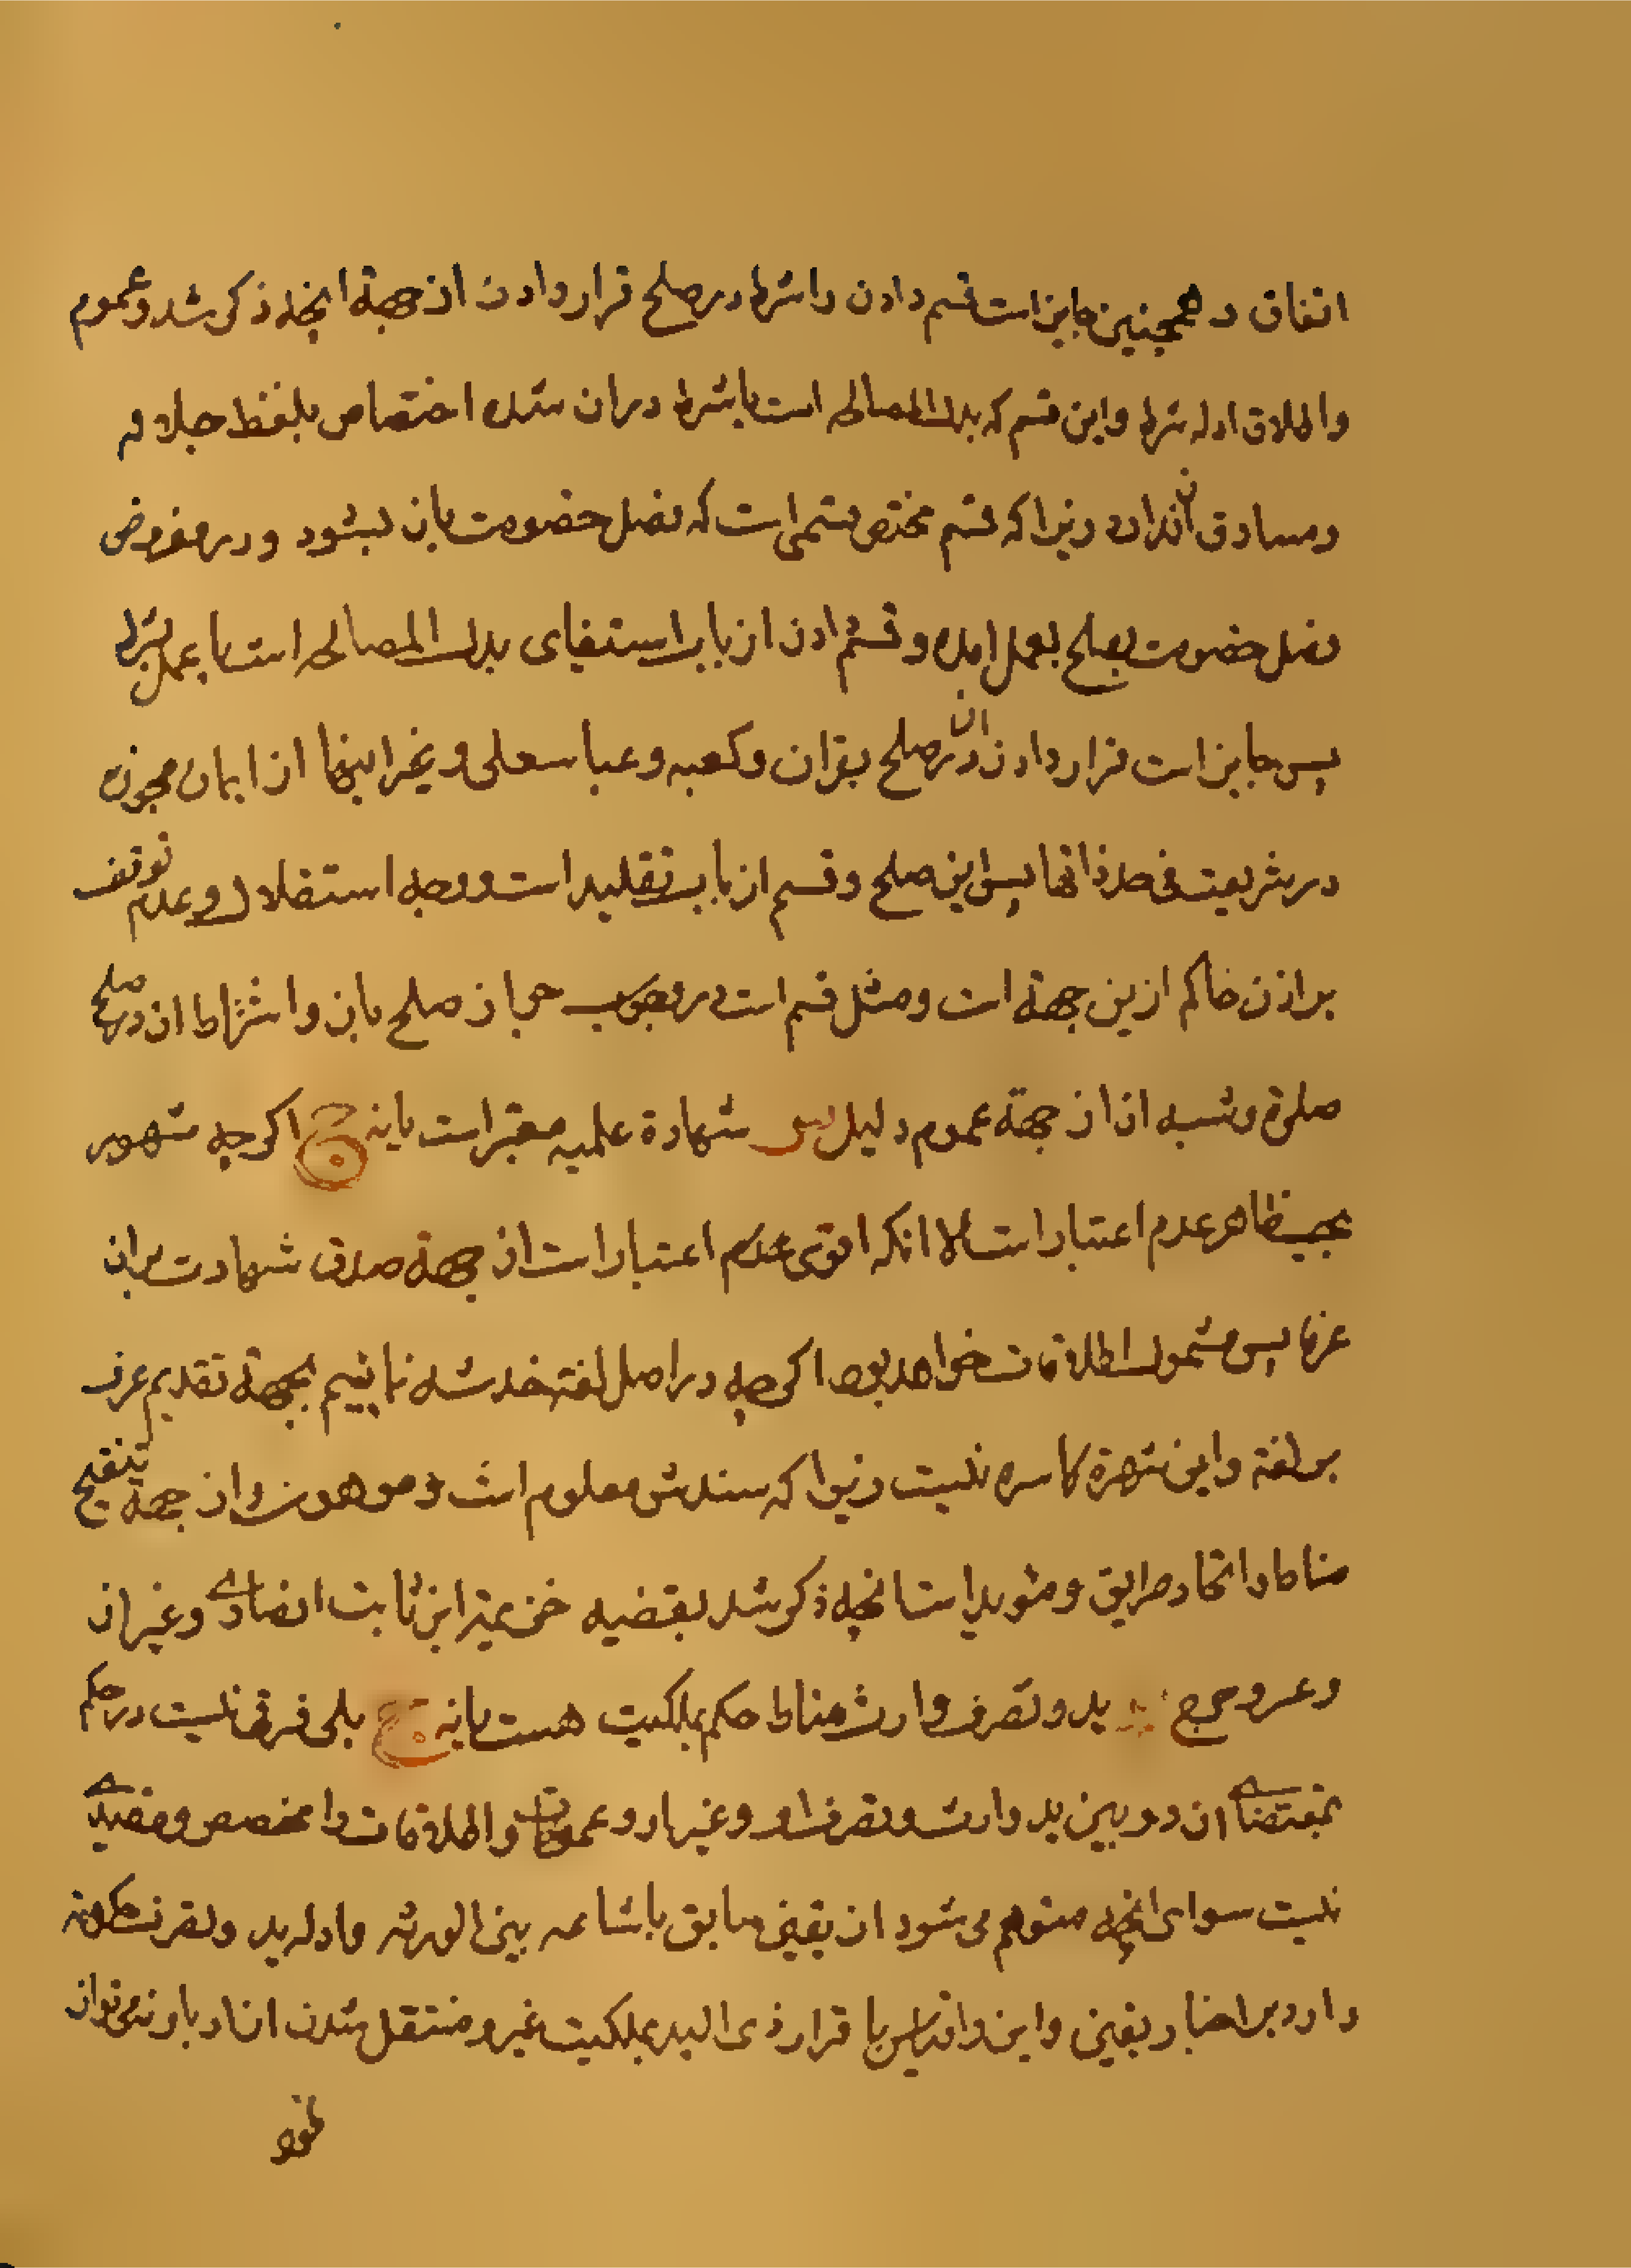 اتفاق و همچنین جایز است قسم دادن را شرط در صلح قرار دادن از جهة انچه ذکر شد و عموم
و اطلاق ادله شرط و این قسم که بدل المصالحه است یا شرط در ان شده اختصاص بلفظ جلاله و
و مسادق ان ندارد زیرا که قسم مختص قسمی است که فصل خصومت بان بشود و در مفروض
فصل خصومت بصلح بعمل امده و قسم دادن از باب استیفای بدل المصالحه است یا عمل بشرط
پس جایز است قرار دادن ان در صلح بقران و کعبه و عباسعلی و غیر اینها از ایمان مجوزه
در شریعت فی حد ذاتها پس این صلح و قسم از باب تقلید است و وجه استقلال و عدم توقف
بر اذن حاکم ازین جهة است و مثل قسم است در جواز صلح بان و اشتراط ان در صلح
صلوة و شبه ان از جهة عموم دلیل س شهادة علمیه معتبر است یا نه ج اکرچه مشهور
بحسب ظاهر عدم اعتبار است الا انکه اقوی عدم اعتبار است از جهة صدق شهادت بران
عرفا پس مشمول اطلاقات خواهد بود اکرچه در اصل لغة خدشه نمائیم بجهة تقدیم عرف
بر لغة و این شهرة کاسره نیست زیرا که سندش معلوم است و موهون و از جهة تنقیح
مناط و اتحاد طریق و مؤید است انچه ذکر شد بقضیه خزیمة ابن ثابت انصاری و غیر ان
ید و تصرف وارث مناط حکم بملکیت هست یا نه ج بلی فرقی نیست در حکم
بمقتضای ان دو بین ید وارث و تصرف او و غیر او و عمومات و اطلاقات را مخصص و مقیدی
نیست سوای انچه متوهم می شود از یقین سابق باشاعه بین الورثه و ادله ید و تصرف حکومة
دارد بر اخبار یقین و این را قیاس با قرار ذی الید بملکیت غیر و منتقل شدن از او باو نمی توان
نمود